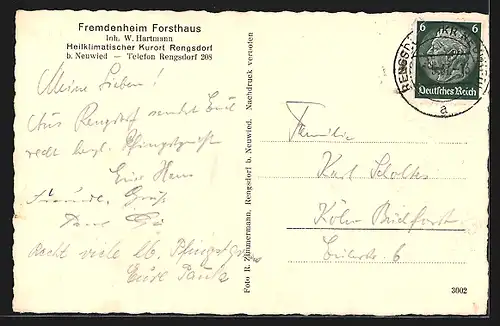 Fremdenheim Forsthaus
Inh. W. Hartmann
Heilklimatischer Kurort Rengsdorf
b. Neuwied — Telefon Rengsdorf 208
Meine Lieben!
Aus Rengsdorf sendet Euch
recht herzl. Pfingstgrüße
Euer Hans
Freundl. Grüße
Recht viele lb. Pfingstgrüße
Eure Paula
Foto R. Zimmermann, Rengsdorf b. Neuwied. Nachdruck verboten
6 6
Deutsches Reich
RENGSDORF
a
Familie
Karl Scholtes
Köln
6
3002